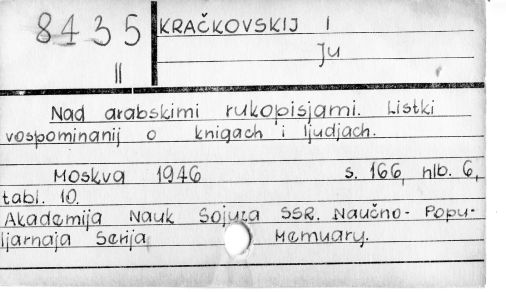 8435
II
KRAČKOVSKIJ I
Ju
Nad arabskimi rukopisjami. Listki
vospominanij o knigach i ljudjach.
Moskva 1946 s. 166, nlb. 6,
tabl. 10.
Akademija Nauk Sojuza SSR. Naučno-Popu-
ljarnaja Serija Memuary.